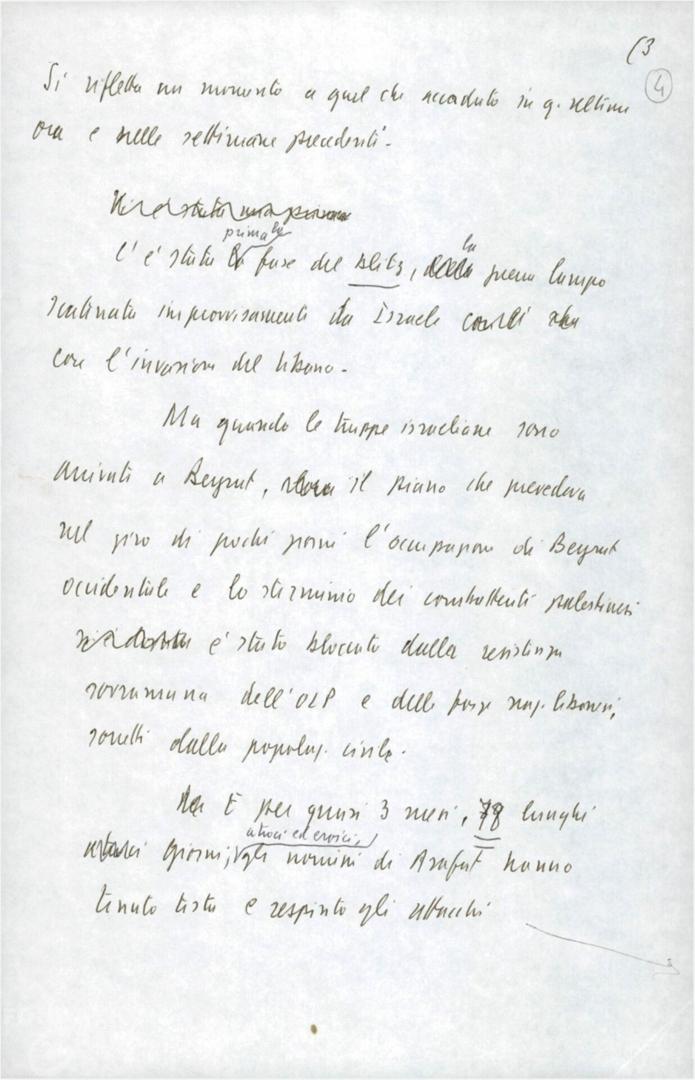 (3
4
Si rifletta un momento a quel che accaduto in q. ultime
ora e nelle settimane precedenti.
prima la
C'è stata fase del blitz, la guerra lampo
scatenata improvvisamente da Israele
con l'invasione del Libano.
Ma quando le truppe israeliane sono
arrivate a Beyrut, il piano che prevedeva
nel giro di pochi giorni l'occupazione di Beyrut
occidentale e lo sterminio dei combattenti palestinesi
è stato bloccato dalla resistenza
sovrumana dell'OLP e delle forze naz. libanesi,
sorretti dalla popolaz. civile.
E per quasi 3 mesi, 78 lunghi
atroci ed eroici,
giorni, gli uomini di Arafat hanno
tenuto testa e respinto gli attacchi